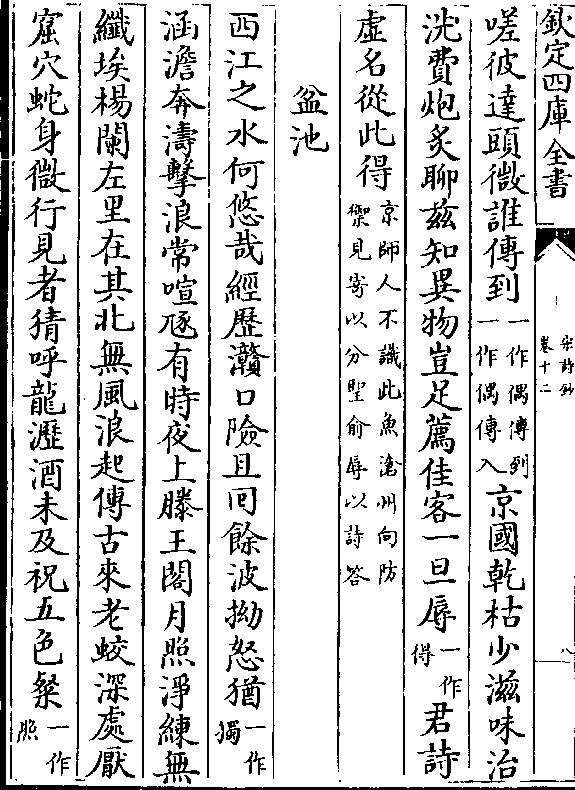 欽定四庫全書
宋詩鈔
卷十二
八
嗟彼達頭微誰傳到一作偶傳到一作偶傳入京國乾枯少滋味治
洗費炮炙聊茲知異物豈足薦佳客一旦辱一作得君詩
虛名從此得京師人不識此魚滄州向防禦見寄以分聖俞辱以詩答
盆池
西江之水何悠哉經歷灨口險且回餘波拗怒猶一作獨
涵澹奔濤擊浪常喧豗有時夜上滕王閣月照淨練無
纖埃楊闌左里在其北無風浪起傳古來老蛟深處厭
窟穴蛇身微行見者猜呼龍瀝酒未及祝五色粲一作照